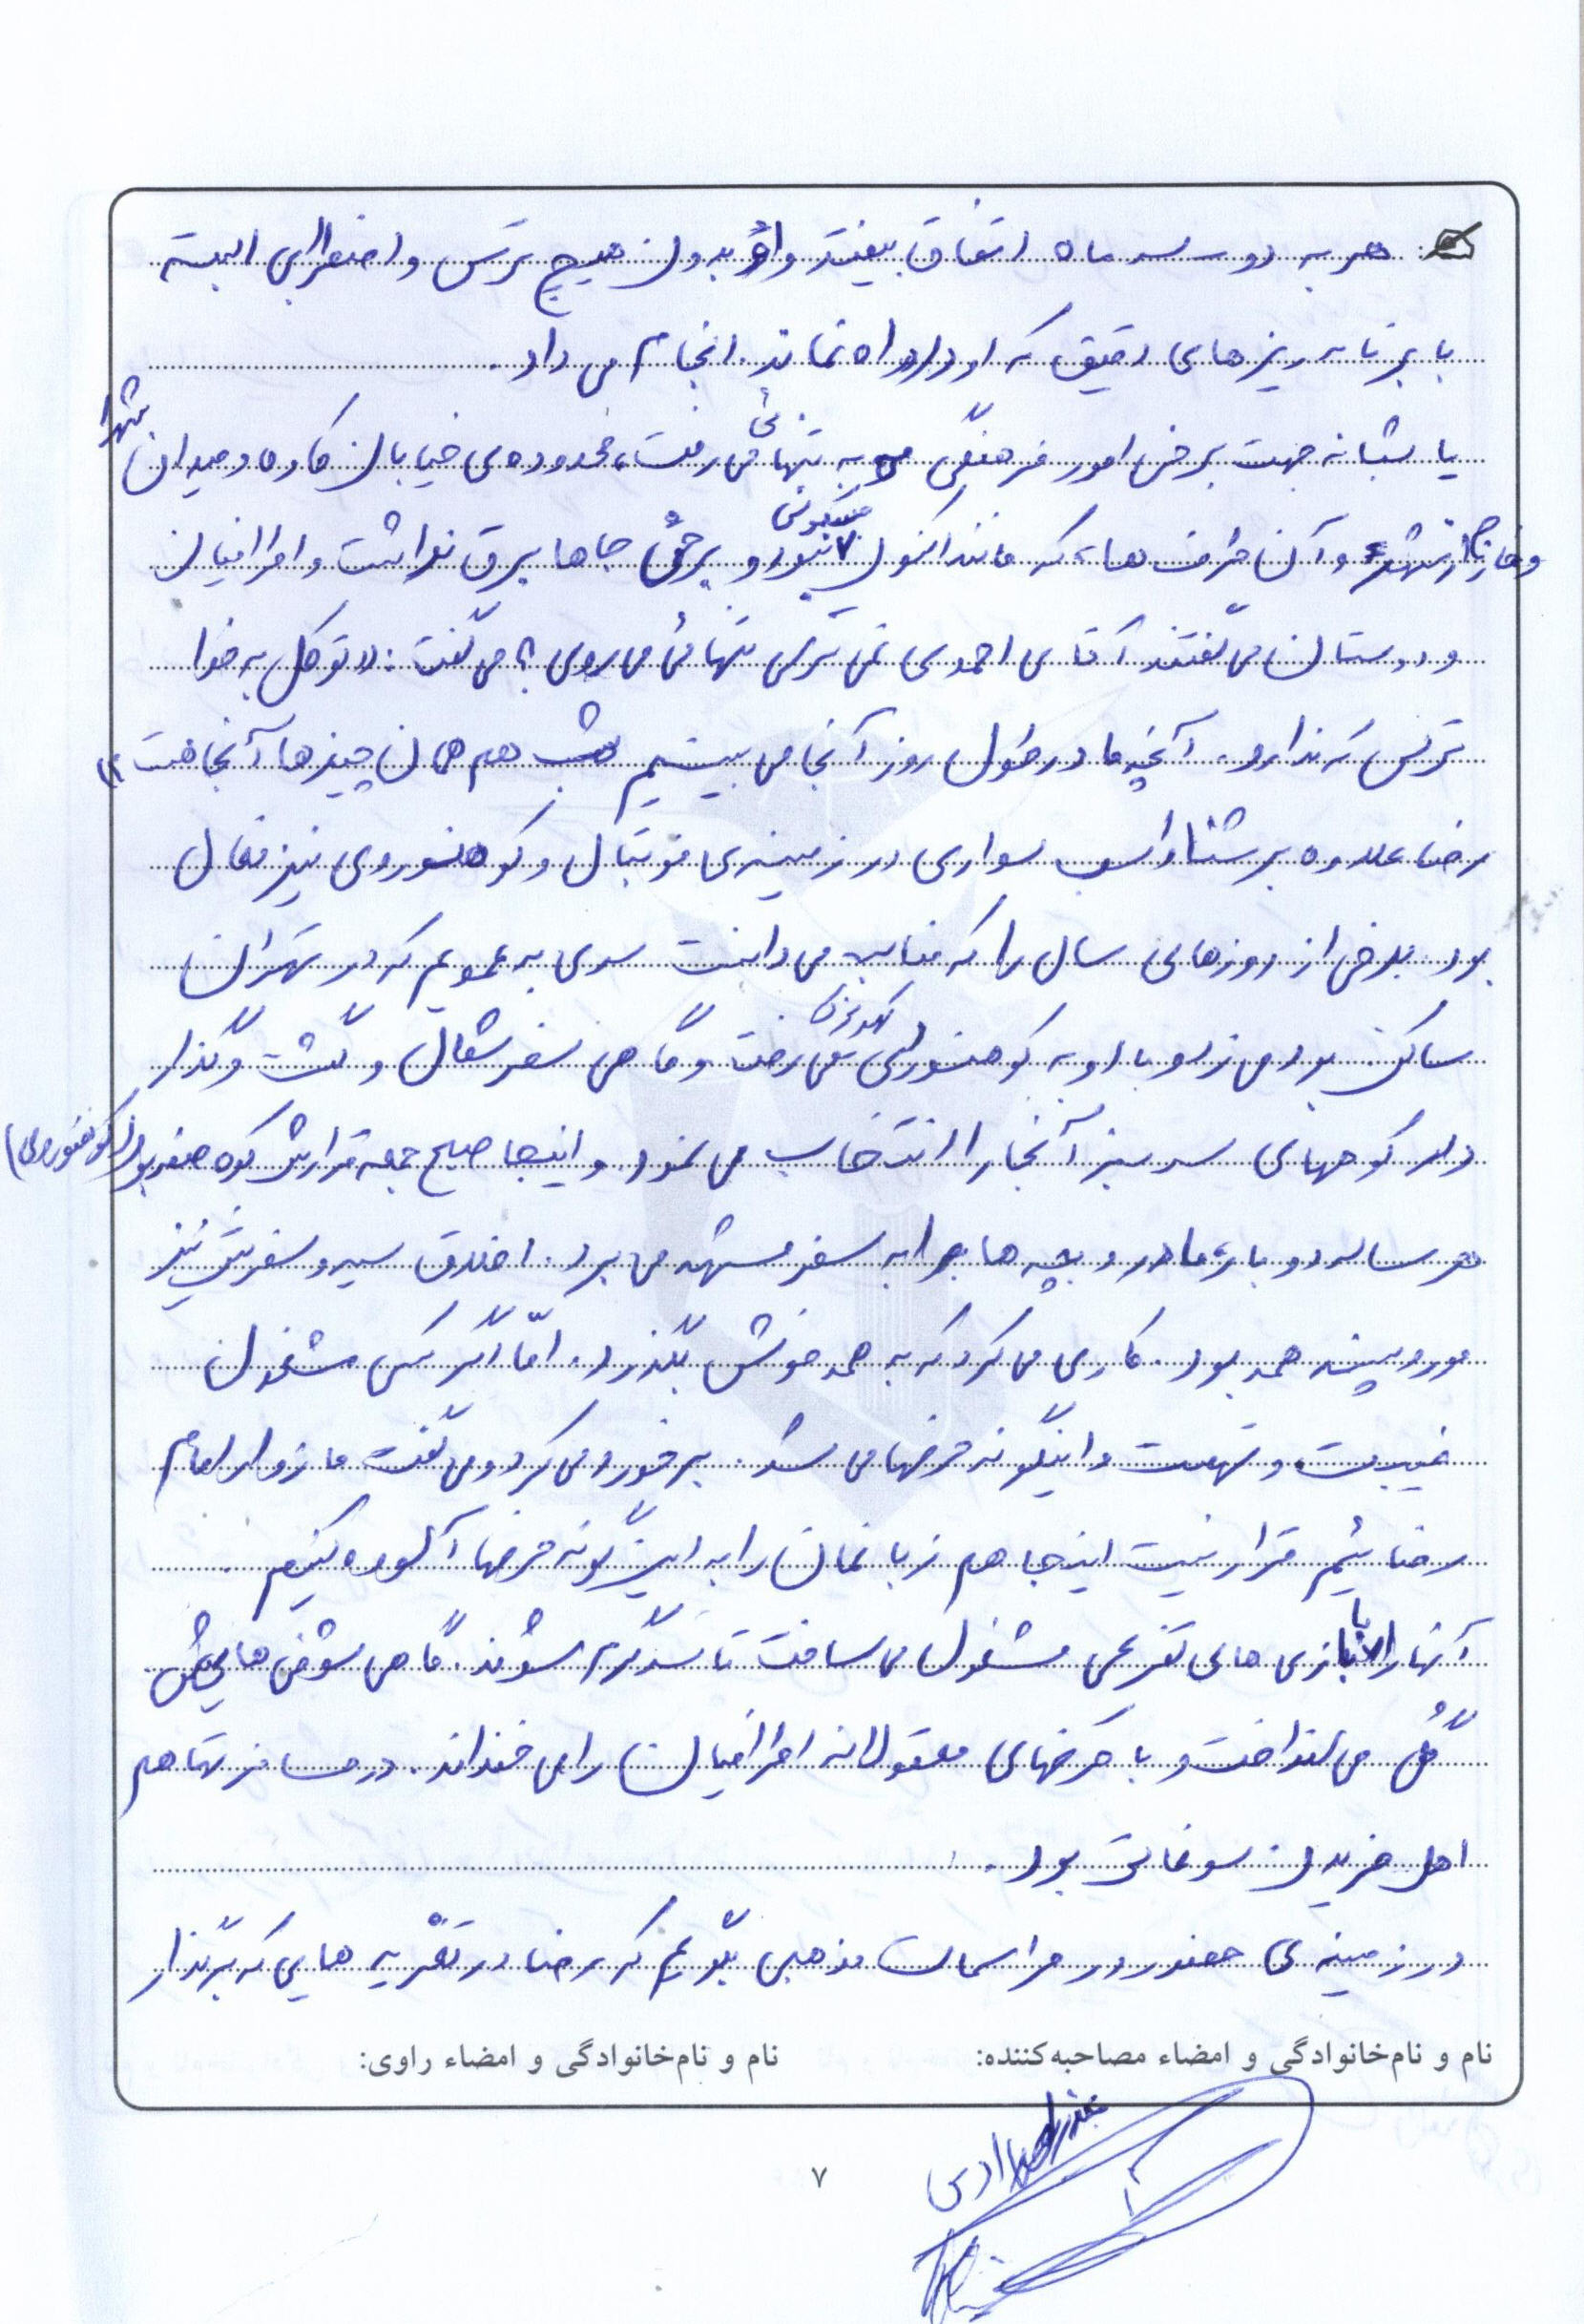 هر به دو سه ماه اتفاق بیفتد و او بدون هیچ ترس و اضطرابی البته
با برنامه ریزهای دقیق که او داد انجام می داد.
یا شبانه جهت برخی امور فرهنگی به تنهائی می رفت، محدوده ی خیابان کاوه و میدان شهدا
و آن طرف ها، که مانند اکنون مسکونی نبود و برخی جاها برق نداشت و اطرافیان
و دوستان می گفتند آقای احمدی نمی ترسی تنهائی می روی؟ می گفت: «توکل به خدا
ترس که ندارد. آنچه ما در طول روز آنجا می بینیم شب هم همان چیزها آنجاهت»
رضا علاوه بر شنا و اسب سواری در زمینه ی فوتبال و کوهنوردی نیز فعال
بود. برخی از روزهای سال را که مناسب می دانست سری به عمویم که در تهران
ساکن بود می زد و با او به کوهنوردی می رفت و گاهی سفر شمال و گشت و گذار
در کوههای سرسبز آنجا را انتخاب می نمود. و اینجا صبح جمعه قرارش کوه صفه بود (کوهنوردی)
هر ساله دو بار، مادر و بچه ها را به سفر مشهد می برد. اخلاق سیر و سفرش نیز
مورد پسند همه بود. کاری می کرد که به همه خوش بگذرد. امّا اگر کسی مشغول
غیبت و تهمت و اینگونه حرفها می شد. برخورد می کرد و می گفت ما زوار امام
رضائیم قرار نیست اینجا هم زبانمان را به این گونه حرفها آلوده کنیم.
آنها را با بازی های تفریحی مشغول می ساخت تا سرگرم شوند. گاهی شوخی هایش
گُل می انداخت و با حرفهای معقولانه اطرافیان را می خنداند. در مسافرتها هم
اهل خریدن سوغاتی بود.
در زمینه ی حضور در مراسمات مذهبی بگویم که رضا در تعزیه هایی که برگذار
نام و نام‌خانوادگی و امضاء مصاحبه‌کننده: نام و نام‌خانوادگی و امضاء راوی:
۷